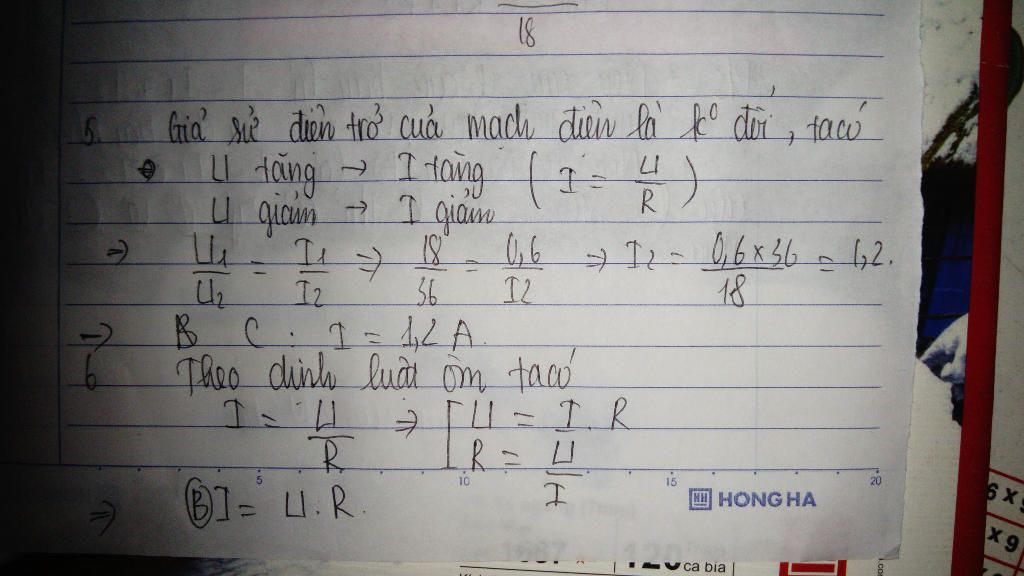 18
5. Giả sử điện trở của mạch điện là k⁰ đổi, ta có
U tăng → I tăng ( I = U/R )
U giảm → I giảm
⇒ U1/U2 = I1/I2 ⇒ 18/36 = 0,6/I2 ⇒ I2 = 0,6×36/18 = 1,2.
→ C : I = 1,2 A.
6 Theo định luật ôm ta có
I = U/R ⇒ [ U = I . R
R = U/I
5 10 15 20
HONG HA
⇒ (B) I = U.R.
6 x
x 9
1687 x 120 cả bìa